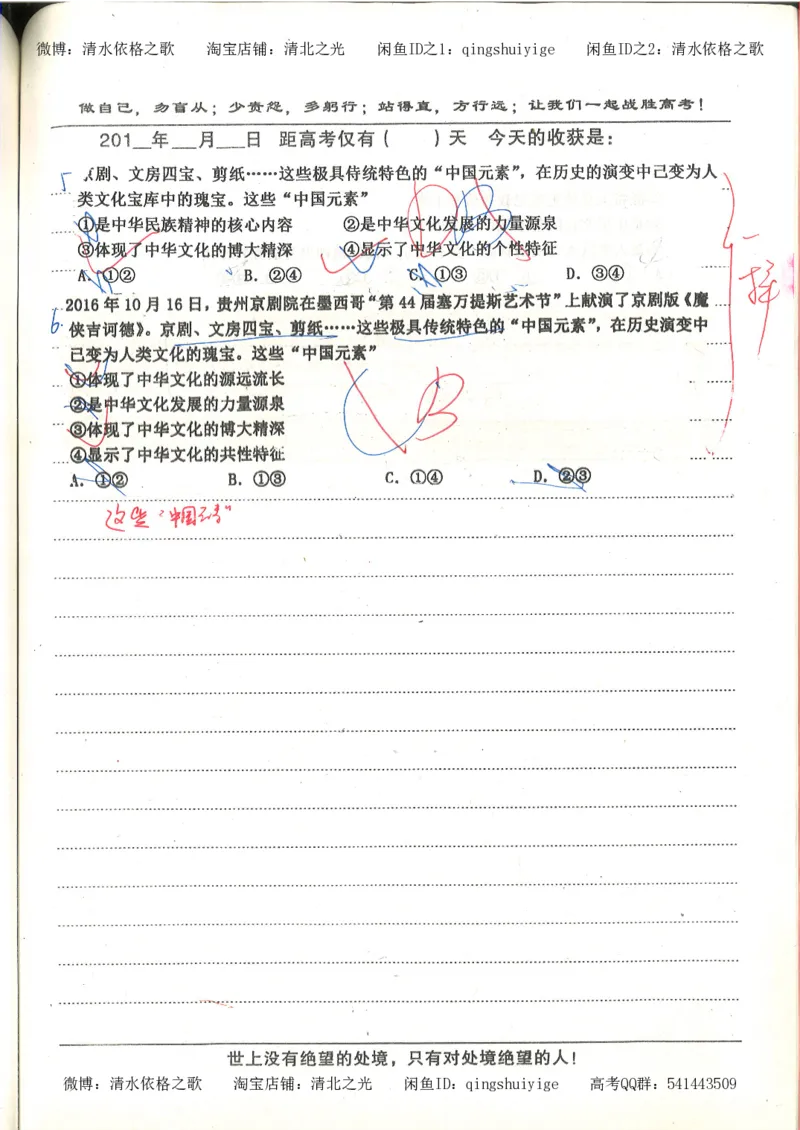 微博：清水依格之歌 淘宝店铺：清北之光 闲鱼ID之1：qingshuiyige 闲鱼ID之2：清水依格之歌
做自己，勿盲从；少责怨，多躬行；站得直，方行远；让我们一起战胜高考！
201__年___月___日 距高考仅有（ ）天 今天的收获是：
5 京剧、文房四宝、剪纸……这些极具传统特色的“中国元素”，在历史的演变中已变为人
类文化宝库中的瑰宝。这些“中国元素”
①是中华民族精神的核心内容 ②是中华文化发展的力量源泉
③体现了中华文化的博大精深 ④显示了中华文化的个性特征
A. ①② B. ②④ C. ①③ D. ③④
一样
2016年10月16日，贵州京剧院在墨西哥“第44届塞万提斯艺术节”上献演了京剧版《魔
6. 侠吉诃德》。京剧、文房四宝、剪纸……这些极具传统特色的“中国元素”，在历史演变中
已变为人类文化的瑰宝。这些“中国元素”
①体现了中华文化的源远流长
②是中华文化发展的力量源泉
③体现了中华文化的博大精深
B
④显示了中华文化的共性特征
A. ①② B. ①③ C. ①④ D. ②③
这些“中国元素”
世上没有绝望的处境，只有对处境绝望的人！
微博：清水依格之歌 淘宝店铺：清北之光 闲鱼ID：qingshuiyige 高考QQ群：541443509